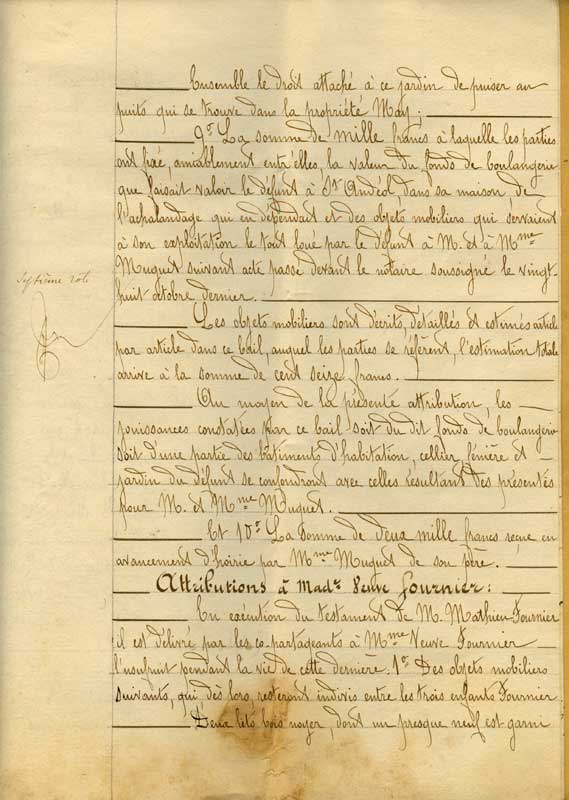 Ensemble le droit attaché à ce jardin de puiser au
puits qui se trouve dans la propriété May;
9° La somme de mille francs à laquelle les parties
ont fixé, amiablement entr'elles, la valeur du fonds de boulangerie
que faisait valoir le défunt à St Andéol, dans sa maison de
l'achalandage qui en dépendait et des objets mobiliers qui servaient
à son exploitation le tout loué par le défunt à M. et à Mme
Muguet suivant acte passé devant le notaire soussigné le vingt-
huit octobre dernier.
Septième rôle
Les objets mobiliers sont décrits, détaillés et estimés article
par article dans ce bail, auquel les parties se réfèrent, l'estimation totale
arrive à la somme de cent seize francs.
Au moyen de la présente attribution, les
jouissances constatées par ce bail soit du dit fonds de boulangerie
soit d'une partie des bâtiments d'habitation, cellier fénière et
jardin du défunt se confondront avec celles résultant des présentes
pour M. et Mme Muguet.
Et 10° La somme de deux mille francs reçue en
avancement d'hoirie par Mme Muguet de son père.
Attributions à Made Veuve Fournier:
En exécution du testament de M. Mathieu Fournier
il est délivré par les co-partageants à Mme Veuve Fournier
l'usufruit pendant la vie de cette dernière. 1° Des objets mobiliers
suivants, qui dès lors resteront indivis entre les trois enfants Fournier
Deux lits bois noyer, dont un presque neuf est garni